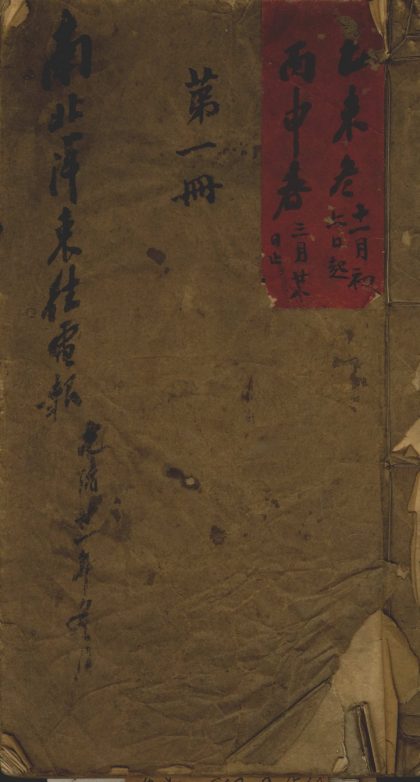 乙未冬 十一月初
六日起
丙申春 三月廿
日止
第一冊
南北洋來往電報
光緒廿一年